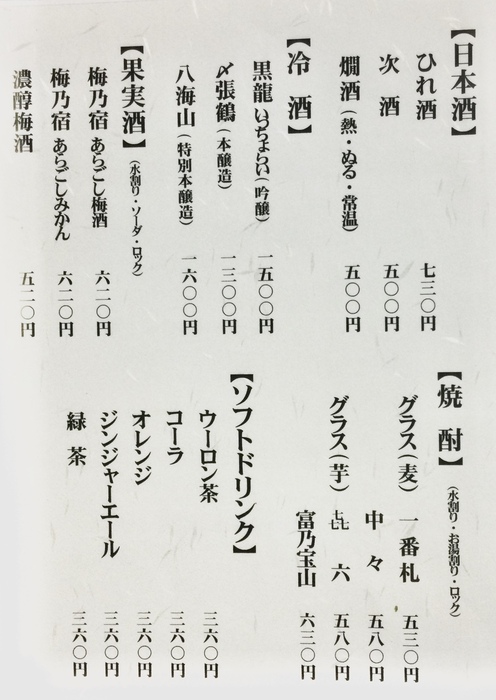 【日本酒】
ひれ酒 七三〇円
次酒 五〇〇円
燗酒（熱・ぬる・常温） 五〇〇円
【冷酒】
黒龍 いっちょらい（吟醸） 一五〇〇円
〆張鶴（本醸造） 一三〇〇円
八海山（特別本醸造） 一六〇〇円
【果実酒】（水割り・ソーダ・ロック）
梅乃宿 あらごし梅酒 六二〇円
梅乃宿 あらごしみかん 六二〇円
濃醇梅酒 五二〇円
【焼酎】（水割り・お湯割り・ロック）
グラス（麦） 一番札 五三〇円
中々 五八〇円
グラス（芋） 㐂六 五八〇円
富乃宝山 六三〇円
【ソフトドリンク】
ウーロン茶 三六〇円
コーラ 三六〇円
オレンジ 三六〇円
ジンジャーエール 三六〇円
緑茶 三六〇円